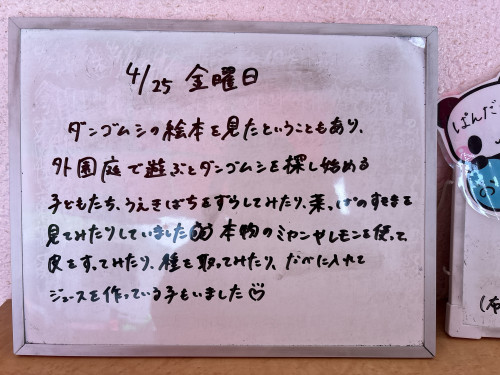 4/25 金曜日
ダンゴムシの絵本を見たということもあり、
外園庭で遊ぶとダンゴムシを探し始める
子どもたち、うえきばちをずらしてみたり、葉っぱのすきまを
見てみたりしていました 本物のミカンやレモンを使って
皮をすってみたり、種を取ってみたり、なべに入れて
ジュースを作っている子もいました♡
ぱんだ
の